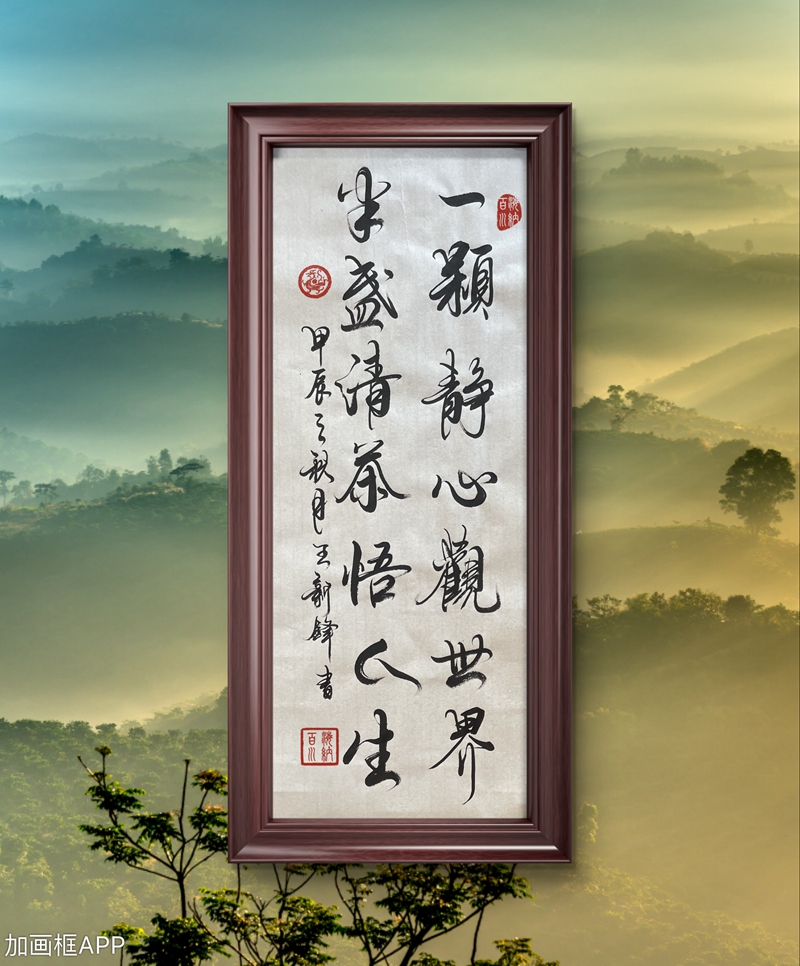 一顆靜心觀世界
半盏清茶悟人生
甲辰之秋月王新鋒書
海納百川
海納百川
加画框APP